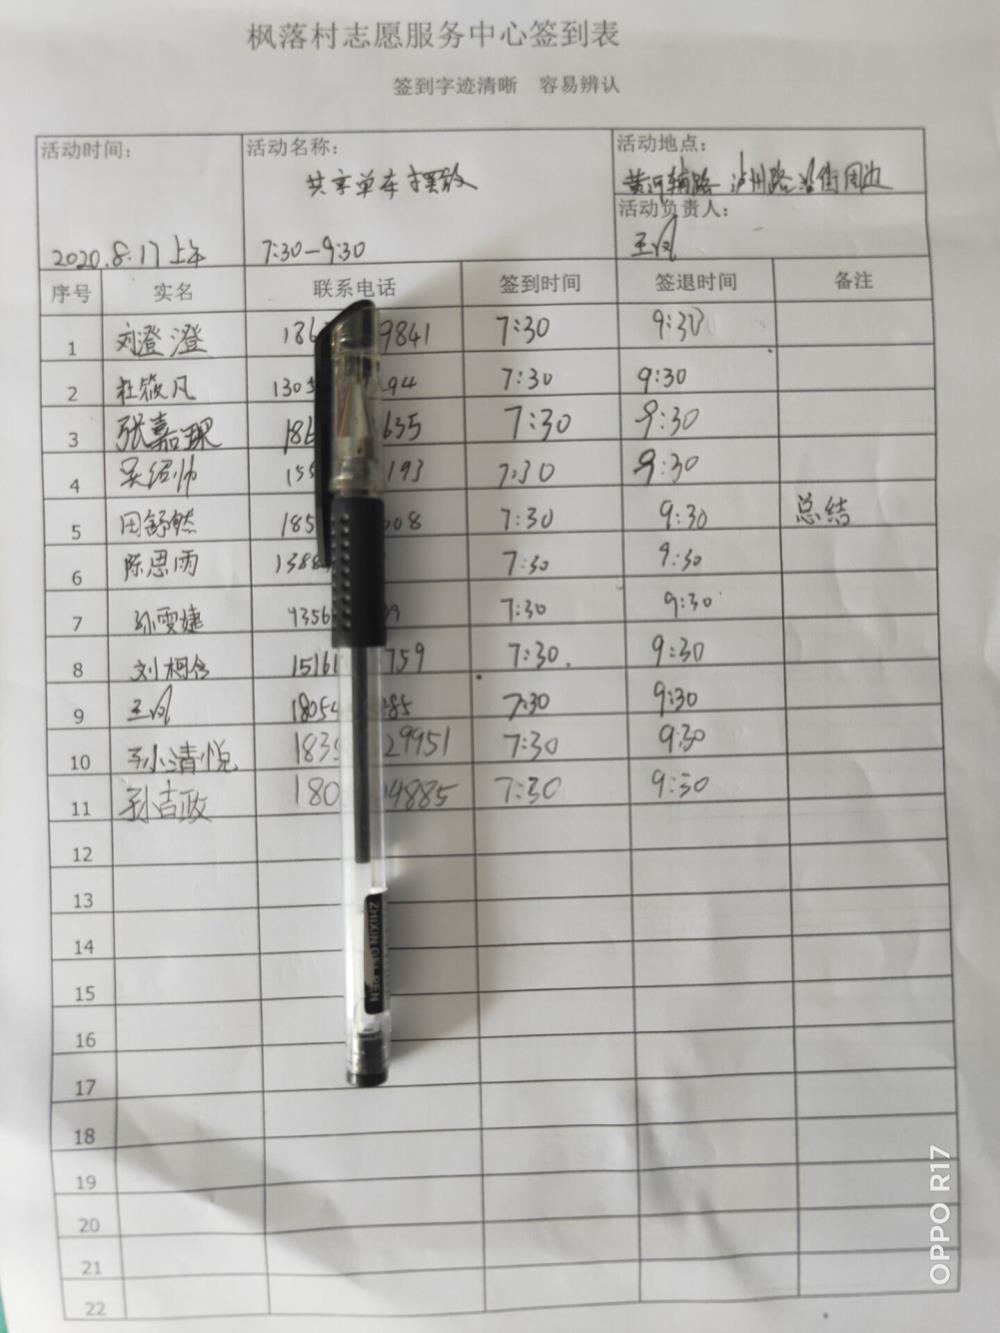 枫落村志愿服务中心签到表
签到字迹清晰 容易辨认
活动时间: 活动名称: 活动地点:
共享单车摆放 黄河辅路 泸州路沿街周边
活动负责人:
2020.8.17上午 7:30-9:30 王凤
序号 实名 联系电话 签到时间 签退时间 备注
1 刘澄澄 186 9841 7:30 9:30
2 杜筱凡 1305 94 7:30 9:30
3 张嘉琪 186 635 7:30 9:30
4 吴绍帅 155 193 7:30 9:30
5 田舒然 185 008 7:30 9:30 总结
6 陈思雨 1388 7:30 9:30
7 孙雯婕 9 7:30 9:30
8 刘柯含 15161 759 7:30. 9:30
9 王凤 18054 85 7:30 9:30
10 孙清悦 183 29951 7:30 9:30
11 孙吉政 180 4885 7:30 9:30
12
13
14
15
16
17
18
19
20
21
22
ZHIXIN GEL PEN
OPPO R17